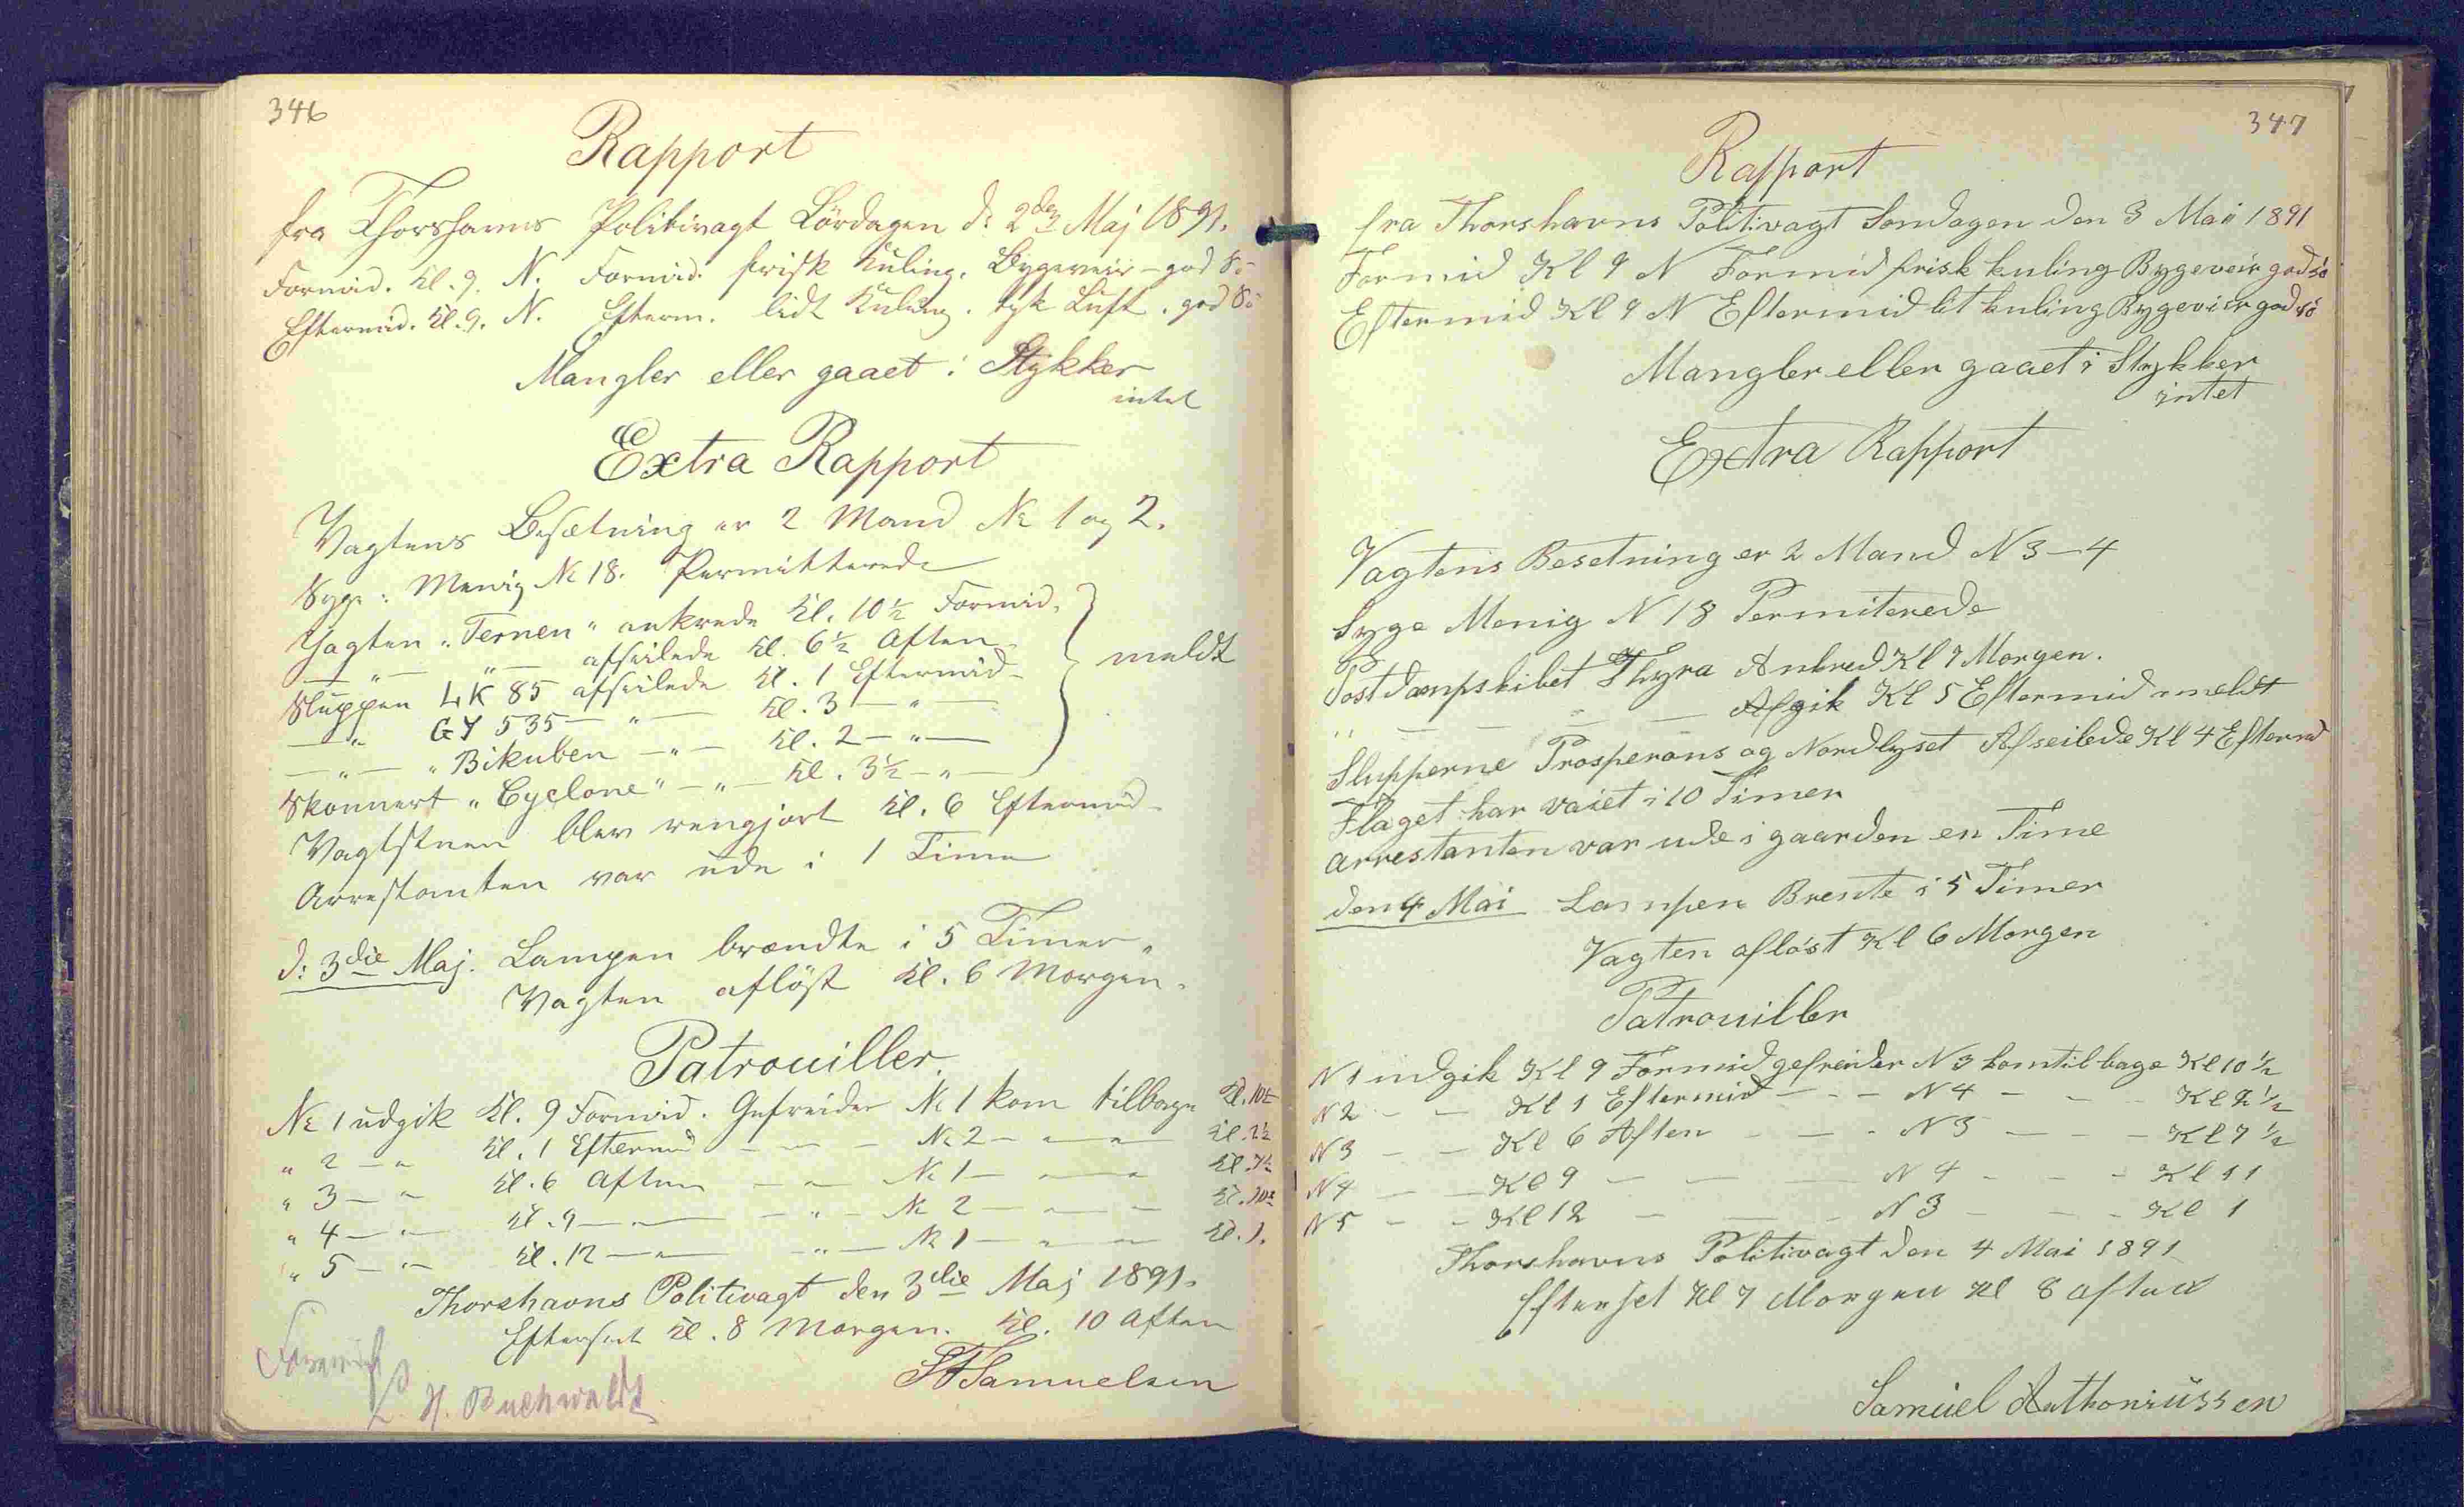 346
Rapport
fra Thorshavns Politivagt Lördagen d: 2den Maj 1891.
Formid. Kl. 9. N. Formid. frisk Kuling. Bygeveir - god Sö
Eftermid. Kl. 9. N. Efterm. lidt Kuling. tyk Luft. god Sö
Mangler eller gaaet i Stykker
intet
Extra Rapport
Vagtens Besætning er 2 Mand No 1 og 2.
Syge: Menig No 18. Permitterede
Jagten "Ternen" ankrede Kl. 10½ Formid.
— " — " — afseilede Kl. 6½ Aften
Sluppen LK 85 afseilede Kl. 1 Eftermid- meldt
— " GY 535 — " — Kl. 3 — " —
— " — "Bikuben — " — Kl. 2 — " —
Skonnert "Cyclone" — " — Kl. 3½ — " —
Vagtstuen blev rengjort Kl. 6 Eftermid-
Arrestanten var ude i 1 Time
d: 3die Maj. Lampen brændte i 5 Timer.
Vagten aflöst Kl. 6 Morgen.
Patrouiller.
No 1 udgik Kl. 9 Formid. Gefreider No 1 kom tilbage Kl. 10½
" 2 — " Kl. 1 Eftermid — — No 2 — " — " Kl. 2½
" 3 — " Kl. 6 Aften — " — No 1 — " — " Kl. 7½
" 4 — " — Kl. 9 — " — — " — No 2 — " — Kl. 10½
" 5 — " — Kl. 12 — " — — " — No 1 — " — Kl. 1.
Thorshavns Politivagt den 3die Maj 1891.
Efterset Kl. 8 Morgen. Kl. 10 Aften
Samuelsen
H. Buchwaldt
347
Rapport
fra Thorshavns Politivagt Sondagen den 3 Mai 1891
Formid Kl 9 N Formid frisk kuling Bygeveir god sö
Eftermid Kl 9 N Eftermid lit kuling Bygeveir god sö
Mangler eller gaaet i Stykker
intet
Extra Rapport
Vagtens Besetning er 2 Mand N 3 — 4
Syge Menig N 18 Permiterede
Postdampskibet Thyra Ankred Kl 9 Morgen.
" — — — — Afgik Kl 5 Eftermid meldt
Slupperne Prosperons og Nordlyset Afseilede Kl 4 Eftermd
Flaget har vaiet i 10 Timer
arrestanten var ude i gaarden en Time
den 4 Mai Lampen Brente i 5 Timer
Vagten aflöst Kl 6 Morgen
Patrouiller
N 1 udgik Kl 9 Formid gefreider N 3 kom tilbage Kl 10 ½
N 2 — — Kl 1 Eftermid — - - N 4 - — - Kl 2 ½
N 3 — — Kl 6 Aften — — - N 3 — — - Kl 7 ½
N 4 — — Kl 9 — — — N 4 - - - Kl 11
N 5 - - Kl 12 — — - N 3 - - - Kl 1
Thorshavns Politivagt den 4 Mai 1891
Efterset Kl 7 Morgen Kl 8 aften
Samüel Anthoniüssen